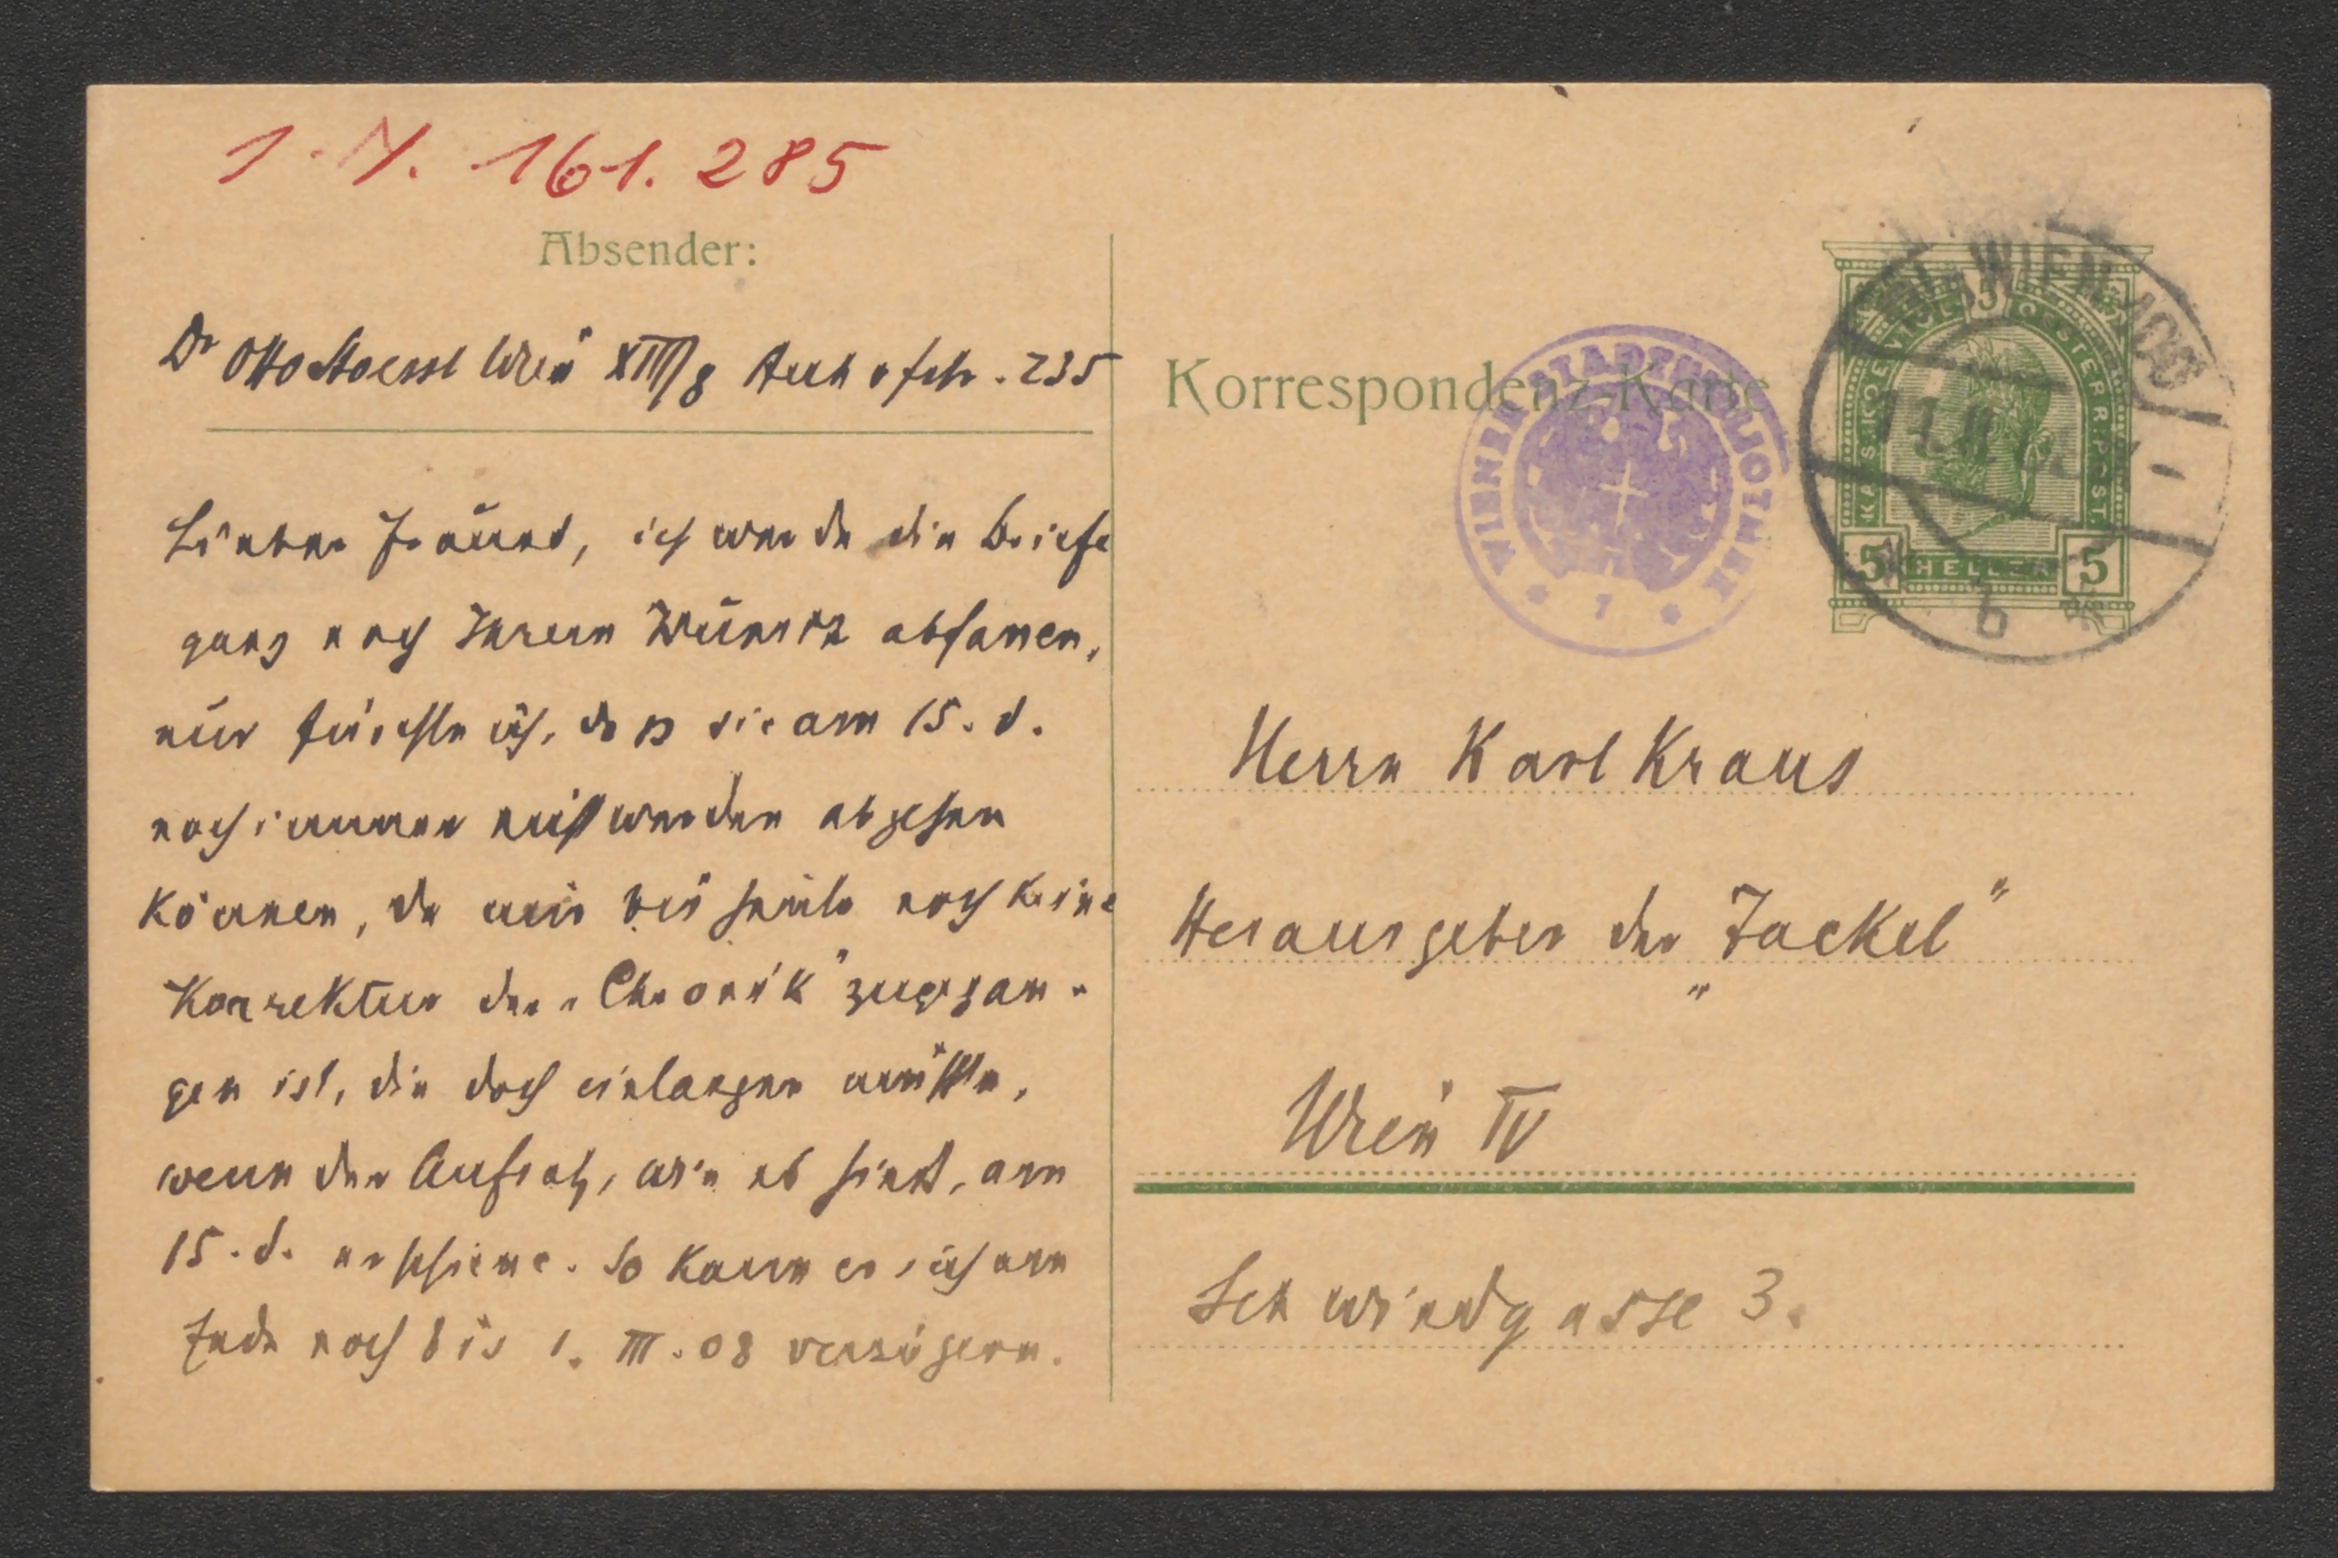 I. N. 161.285
Absender:
Dr Otto Stoessl Wien XIII/8 Auhofstr. 235
Lieber Freund, ich werde die Briefe
ganz nach Ihrem Wunsch abfassen,
nur fürchte ich, daß sie am 15. d.
noch immer nicht werden abgehen
können, da mir bis heute noch keine
Korrektur der „Chronik" zugegan-
gen ist, die doch einlangen müßte,
wenn der Aufsatz, wie es hieß, am
15. d. erschiene. So kann es sich am
Ende noch bis 1. III. 08 verzögern.
Korrespondenz-Karte
WIENER STADTBIBLIOTHEK
* 7 *
KAIS. KOENIGL. OESTERR. POST.
5 HELLER 5
WIEN 100
b
Herrn Karl Kraus
Herausgeber der „Fackel"
Wien IV
Schwindgasse 3.